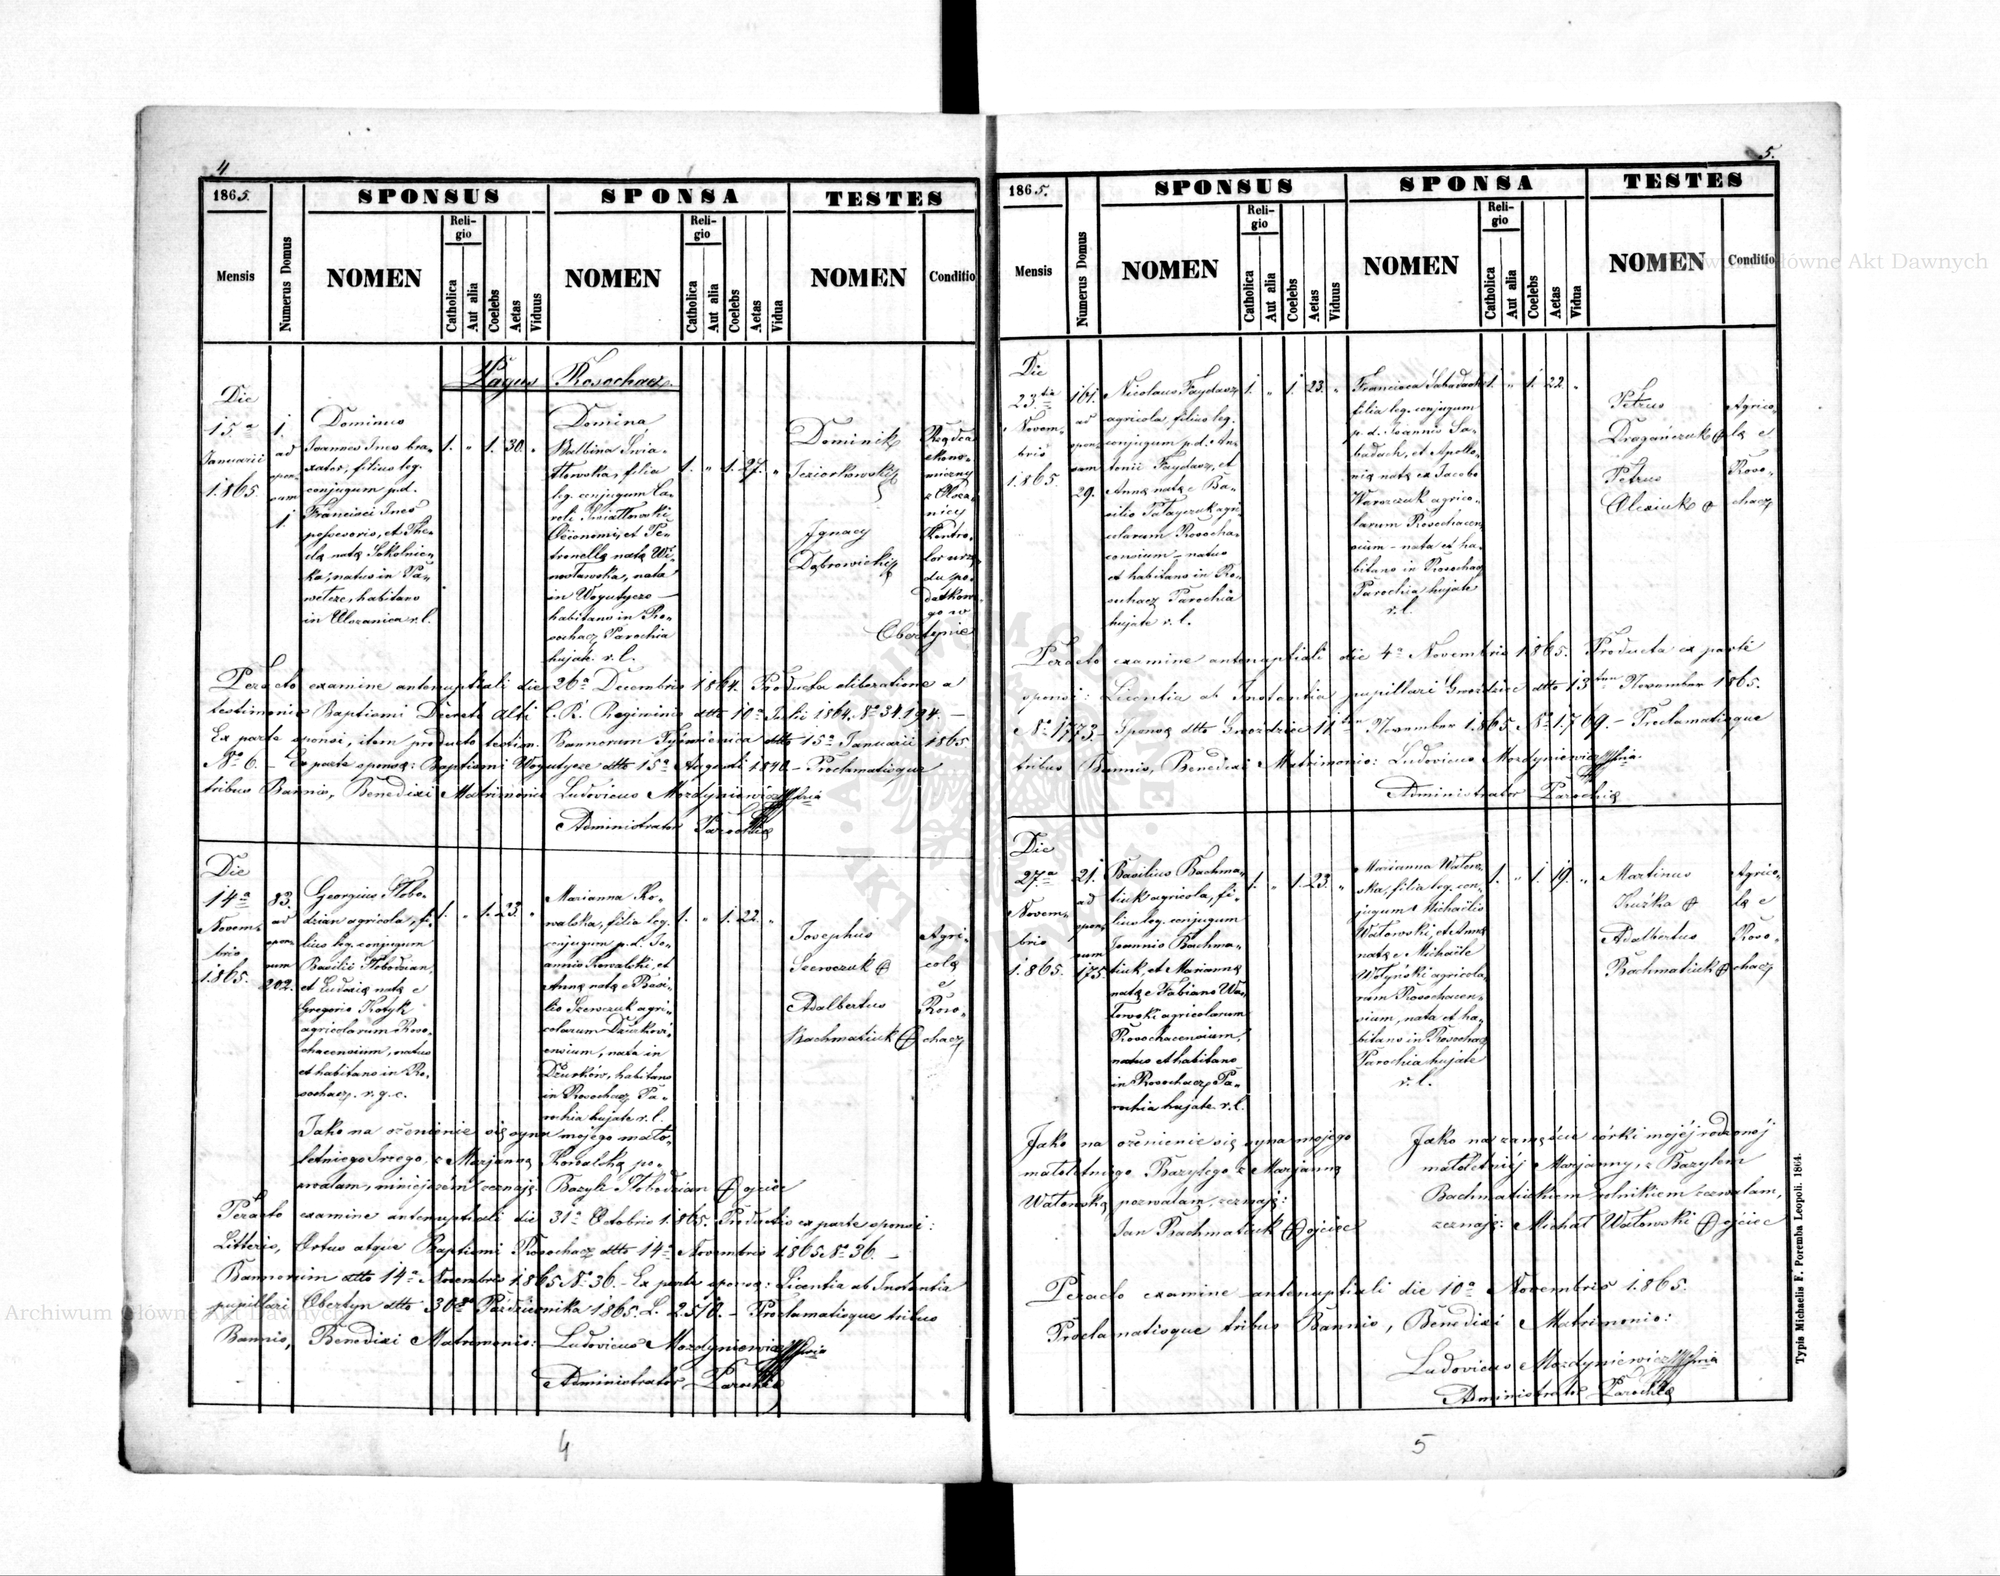 4
1865.
Mensis
Numerus Domus
SPONSUS
NOMEN
Religio
Catholica
Aut alia
Coelebs
Aetas
Viduus
SPONSA
NOMEN
Religio
Catholica
Aut alia
Coelebs
Aetas
Vidua
TESTES
NOMEN
Conditio
Pagus Rosochacz
Die
15a
Januarii
1865.
1.
ad
spon-
sum
1
Dominus
Joannes Ines bra-
xator, filius leg.
conjugum p.d.
Francisci Ines
possessoris, et The-
natus in Pa-
habitans
r. l.
1. " 1. 30. "
Domina
Balbina Swia-
tłowska, filia
leg. conjugum Ca-
roli Swiatłowski
Oeconomi, et Pe-
tronella nata
nata
in
habitans in Ro-
sochacz Parochia
hujate. r. l.
1. " 1. 27. "
Dominik
Jeziorkowski
Ignacy
Dąbrowicki
Rządca
ekono-
miczny
Kontro-
lor urzę-
du po-
datkow-
go w
Obertynie
Peracto examine antenuptiali die 26a Decembris 1864. Producta a
testimonio Baptismi Decreti alti C. R. Regiminis dtto 10a Julii 1864. No 34.194. –
Ex parte sponsi, item producto testim. Bannorum dtto 15a Januarii 1865
No 6. – Ex parte sponsæ: Baptismi dtto 15a Augusti 1840. – Proclamatisque
tribus Bannis, Benedixi Matrimonio Ludovicus Mozdyniewicz
Administrator Parochiæ
Die
14a
Novem-
bris
1865.
83.
ad
spon-
sum
202.
Georgius Słobo-
dzian agricola, fi-
lius leg. conjugum
Basilii Słobodzian,
et nata e
Gregorio Kotyk
agricolarum Roso-
chacensium, natus
et habitans in Ro-
sochacz. r. g. c.
1. " 1. 23. "
Marianna Ko-
walska, filia leg.
conjugum p. d. Jo-
annis Kowalski, et
Anna nata e Basi-
lio Szewczuk agri-
colarum Dzurkovi-
ensium, nata in
Dżurków, habitans
in Rosochacz, Pa-
rochia hujate r. l.
1. " 1. 22. "
Josephus
Szewczuk +
Adalbertus
Bachmatiuk +
Agri-
colæ
e
Roso-
chacz
Jako na ożenienie się syna mojego mało-
letniego z Marjanną Kowalską po-
zwalam, niniejszém zeznaję: Bazyli Słobodzian + ojciec
Peracto examine antenuptiali die 31a Octobris 1865. Productis ex parte sponsi:
Litteris, Ortus atque Baptismi Rosochacz dtto 14a Novembris 1865 No 36. –
Bannorum dtto 14a Novembris 1865 No 36. – Ex parte sponsæ: Licentia ab Instantia
pupillari Obertyn dtto 30go Października 1865. L. 2510. – Proclamatisque tribus
Bannis, Benedixi Matrimonio: Ludovicus Mozdyniewicz
Administrator Parochiæ
4
5.
1865.
Mensis
Numerus Domus
SPONSUS
NOMEN
Religio
Catholica
Aut alia
Coelebs
Aetas
Viduus
SPONSA
NOMEN
Religio
Catholica
Aut alia
Coelebs
Aetas
Vidua
TESTES
NOMEN
Conditio
Die
23tia
Novem-
bris
1865.
161.
ad
spon-
sam
29.
Nicolaus Faydasz
agricola, filius leg.
conjugum p. d. An-
tonii Faydasz, et
Anna nata e Ba-
silio agri-
colarum Rosocha-
censium – natus
et habitans in Ro-
sochacz Parochia
hujate r. l.
1. " 1. 23. "
Francisca Sabadach
filia leg. conjugum
p. d. Joannis Sa-
badach, et Apollo-
nia nata ex Jacobo
agrico-
larum Rosochacen-
sium – nata et ha-
bitans in Rosochacz
Parochia hujate
r. l.
1. " 1. 22. "
Petrus
Dragańczuk +
Petrus
Olexiuk +
Agrico-
læ e
Roso-
chacz
Peracto examine antenuptiali die 4a Novembris 1865. Producta ex parte
sponsi: Licentia ab Instantia pupillari Gwoździec dtto 13tia November 1865.
No 1773. – Sponsæ dtto Gwoździec 11ten November 1865. No 1769. – Proclamatisque
tribus Bannis, Benedixi Matrimonio: Ludovicus Mozdyniewicz
Administrator Parochiæ
Die
27a
Novem-
bris
1865.
21.
ad
spon-
sum
175.
Basilius Bachma-
tiuk agricola, fi-
lius leg. conjugum
Joannis Bachma-
tiuk, et Marianna
nata e Fabiano Wa-
towski agricolarum
Rosochacensium,
natus et habitans
in Rosochacz, Pa-
rochia hujate. r. l.
1. " 1. 23. "
Marianna Watow-
ska, filia leg. con-
jugum Michaelis
Watowski, et Anna
nata e Michaele
Wołyński agricola-
rum Rosochacen-
sium, nata et ha-
bitans in Rosochacz
Parochia hujate
r. l.
1. " 1. 19. "
Martinus
Kuźka +
Adalbertus
Bachmatiuk +
Agrico-
læ e
Roso-
chacz
Jako na ożenienie się syna mojego
małoletniego Bazylego z Marjanną
Watowską pozwalam, zeznaję:
Jan Bachmatiuk + ojciec
Jako na zamęście córki mojéj rodzonéj
małoletniéj Marjanny, z Bazylem
Bachmatiukiem rolnikiem zezwalam,
zeznaję: Michał Watowski + ojciec
Peracto examine antenuptiali die 10a Novembris 1865.
Proclamatisque tribus Bannis, Benedixi Matrimonio:
Ludovicus Mozdyniewicz
Administrator Parochiæ
Typis Michaelis F. Poremba Leopoli. 1864.
5
Archiwum Główne Akt Dawnych
Archiwum Główne Akt Dawnych